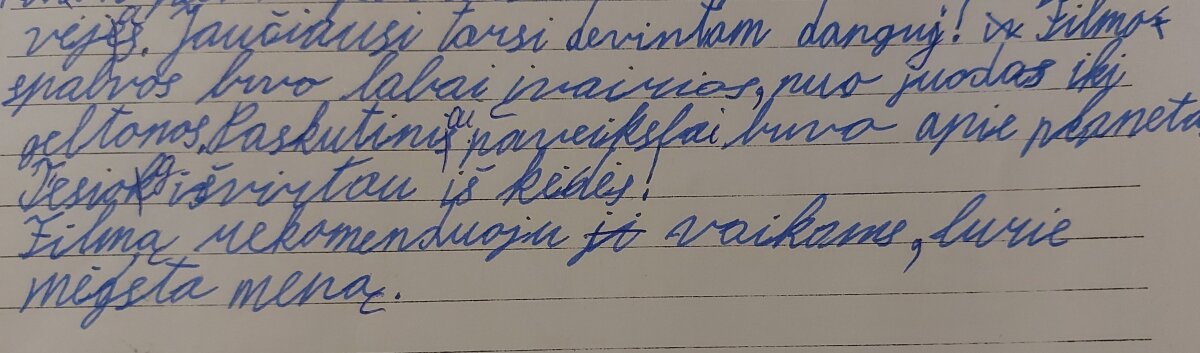 vėjęs. Jaučiausi tarsi devintam danguj! Filmo
spalvos buvo labai įvairios, nuo juodos iki
geltonos. Paskutiniai paveikslai buvo apie planeta
Tesiog išvirtau iš kėdės!
Filmą rekomenduoju vaikams, kurie
mėgsta meną.